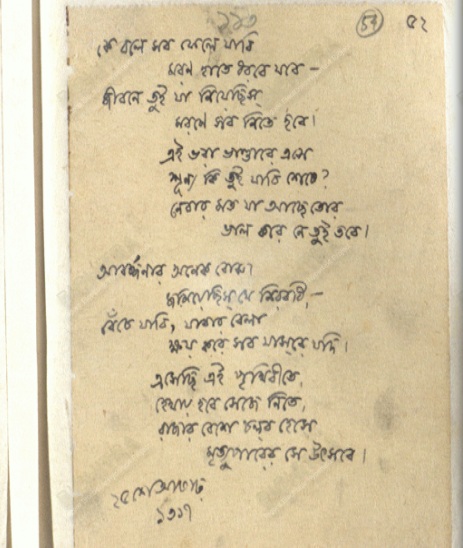 ১১৩
58 ৫২
কে বলে সব ফেলে যাবি
মরণ হাতে ধরবে যবে –
জীবনে তুই যা নিয়েছিস্
মরণে সব নিতে হবে।
এই ভরা ভাণ্ডারে এসে
শূন্য কি তুই যাবি শেষে?
নেবার মত যা আছে তোর
ভাল করে নে তুই তবে।
আবর্জ্জনার অনেক বোঝা
জমিয়েছিস্ যে নিরবধি, –
বেঁচে যাবি, যাবার বেলা
ক্ষয় করে সব যাস্‌রে যদি।
এসেছি এই পৃথিবীতে,
হেথায় হবে সেজে নিতে,
রাজার বেশে চল্‌রে হেসে
মৃত্যুপারের সে উৎসবে।
২৫শে আষাঢ়
১৩১৭